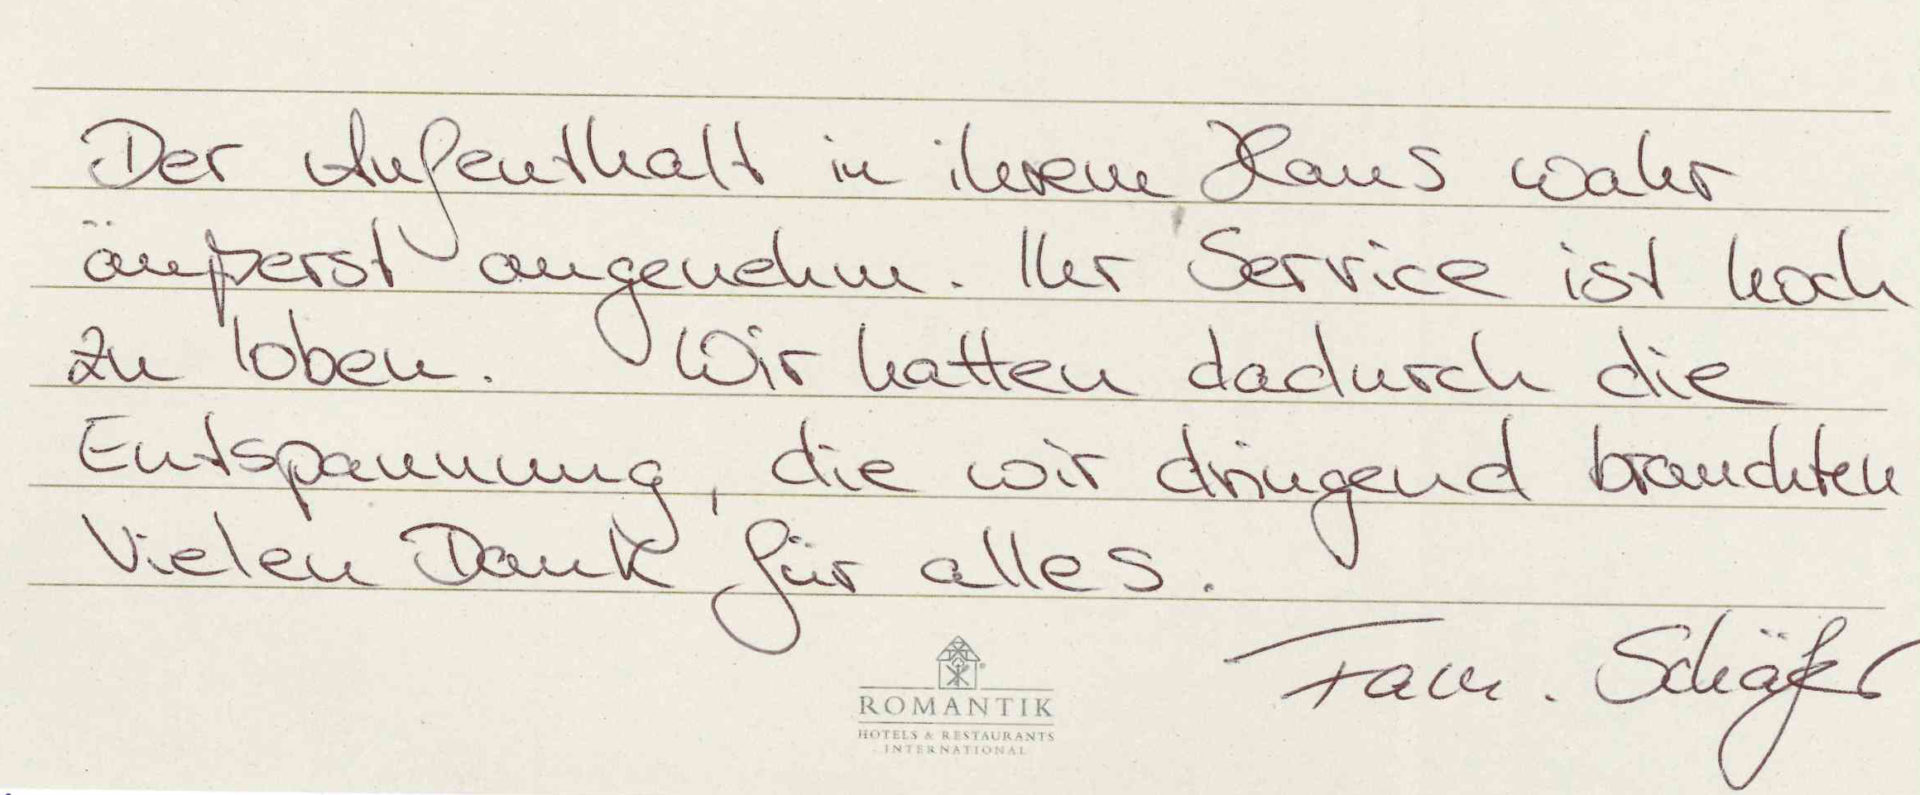 Der Aufenthalt in ihrem Haus wahr
äußerst angenehm. Ihr Service ist hoch
zu loben. Wir hatten dadurch die
Entspannung, die wir dringend brauchten
Vielen Dank für alles.
Fam. Schäfer
ROMANTIK
HOTELS & RESTAURANTS
INTERNATIONAL